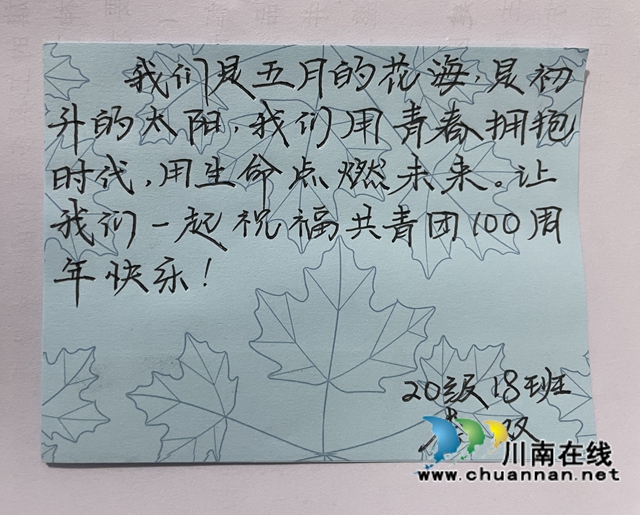 我们是五月的花海，是初
升的太阳，我们用青春拥抱
时代，用生命点燃未来。让
我们一起祝福共青团100周
年快乐！
20级18班
川南在线
www.chuannan.net